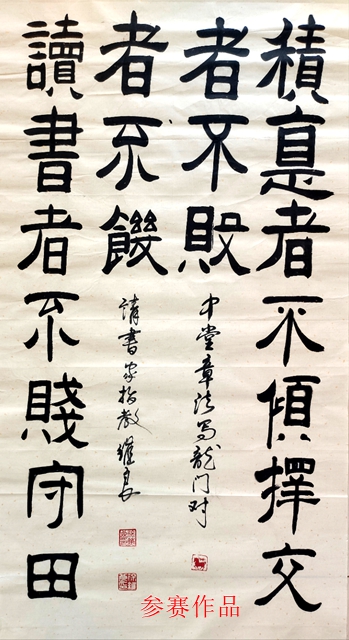 積悳者不傾擇交
者不敗
中堂章法写龍门对
讀書者不賤守田
者不饑
請書家指教
参赛作品